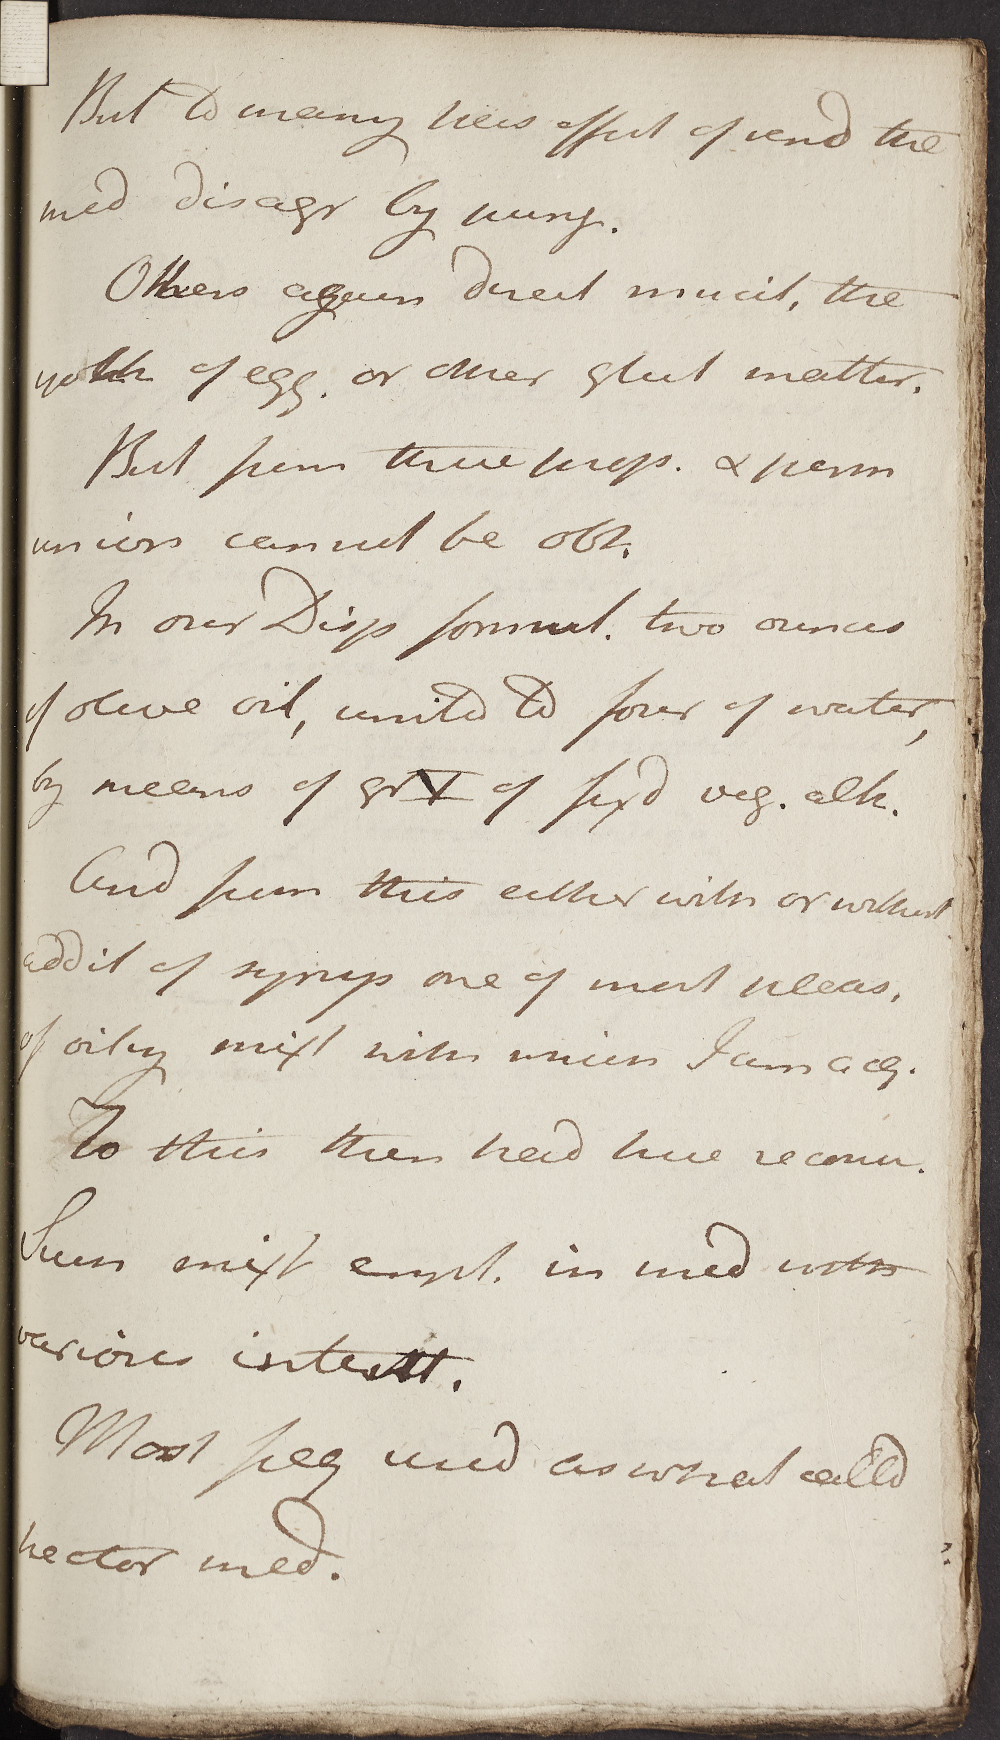 But to many has effect of rend the
med disagr by pung.
Others again direct mucil, the
yolk of egg. or other glut matter.
But from these prop. & perm
union cannot be obt.
In our Disp formul. two ounces
of olive oil, unitd to four of water,
by means of gr V of fixd veg. alk.
And from this either with or without
addit of syrup one of most pleas,
of oily mixt with which I am acq.
To this then had have recour.
Such mixt empl. in med with
various intent.
Most freq used as what calld
pector med.